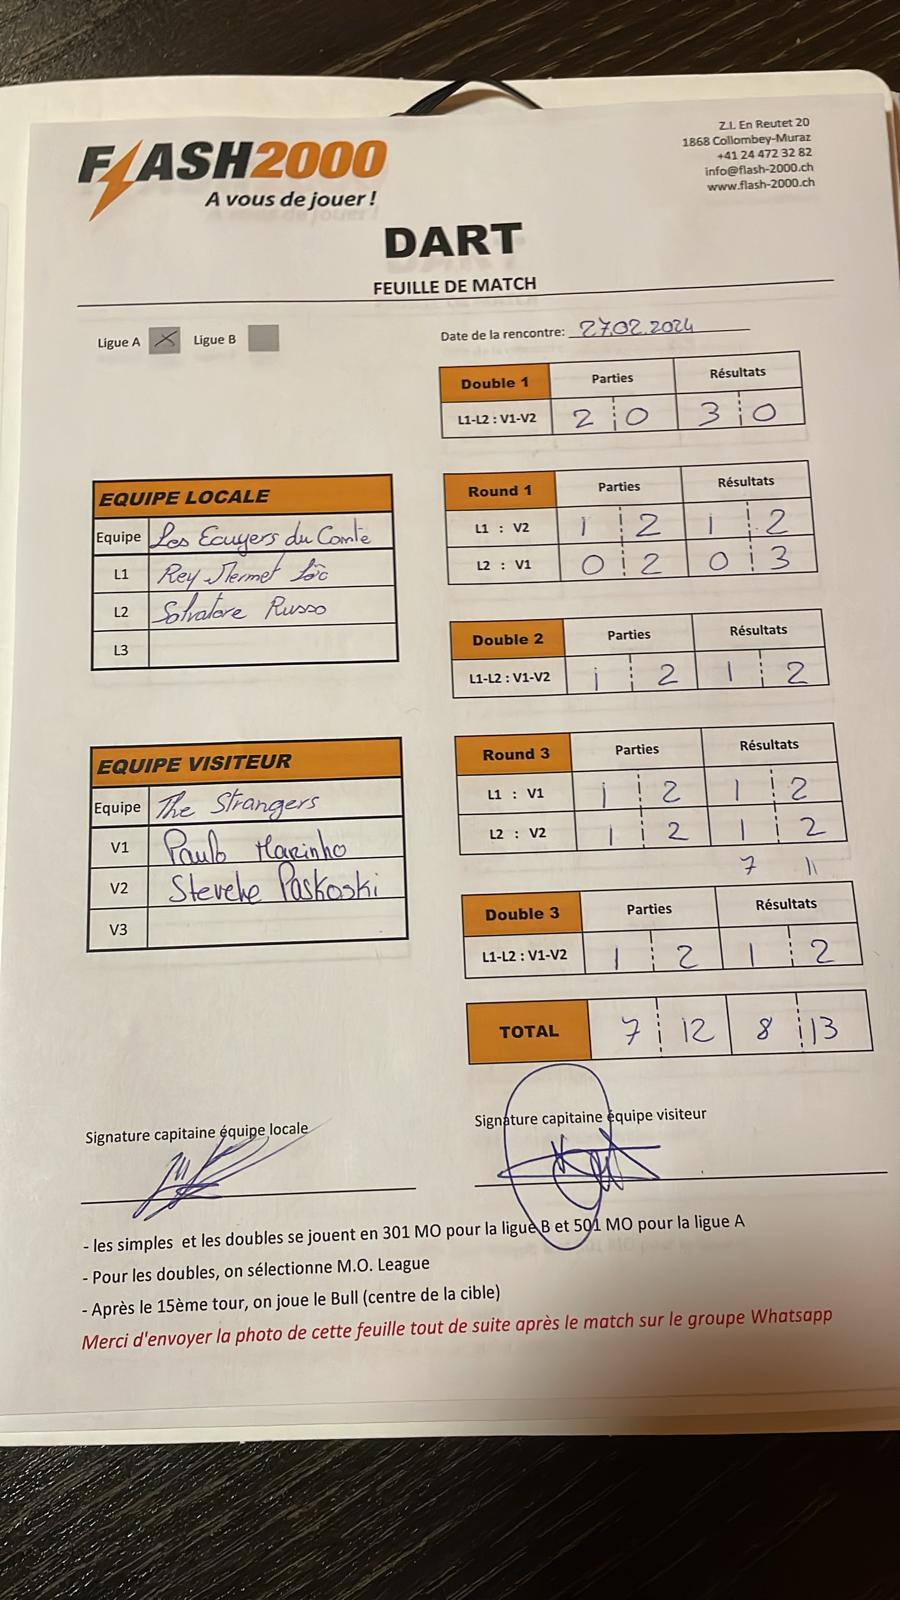 FLASH2000
A vous de jouer !
Z.I. En Reutet 20
1868 Collombey-Muraz
+41 24 472 32 82
info@flash-2000.ch
www.flash-2000.ch
DART
FEUILLE DE MATCH
Ligue A X Ligue B
Date de la rencontre: 27.02.2024
Double 1 Parties Résultats
L1-L2 : V1-V2 2 0 3 0
EQUIPE LOCALE
Equipe Les Ecuyers du Comte
L1 Rey Mermet Loïc
L2 Salvatore Russo
L3
Round 1 Parties Résultats
L1 : V2 1 2 1 2
L2 : V1 0 2 0 3
Double 2 Parties Résultats
L1-L2 : V1-V2 1 2 1 2
EQUIPE VISITEUR
Equipe The Strangers
V1 Paulo Marinho
V2 Steveke Paskoski
V3
Round 3 Parties Résultats
L1 : V1 1 2 1 2
L2 : V2 1 2 1 2
7 11
Double 3 Parties Résultats
L1-L2 : V1-V2 1 2 1 2
TOTAL 7 12 8 13
Signature capitaine équipe locale
Signature capitaine équipe visiteur
- les simples et les doubles se jouent en 301 MO pour la ligue B et 501 MO pour la ligue A
- Pour les doubles, on sélectionne M.O. League
- Après le 15ème tour, on joue le Bull (centre de la cible)
Merci d'envoyer la photo de cette feuille tout de suite après le match sur le groupe Whatsapp